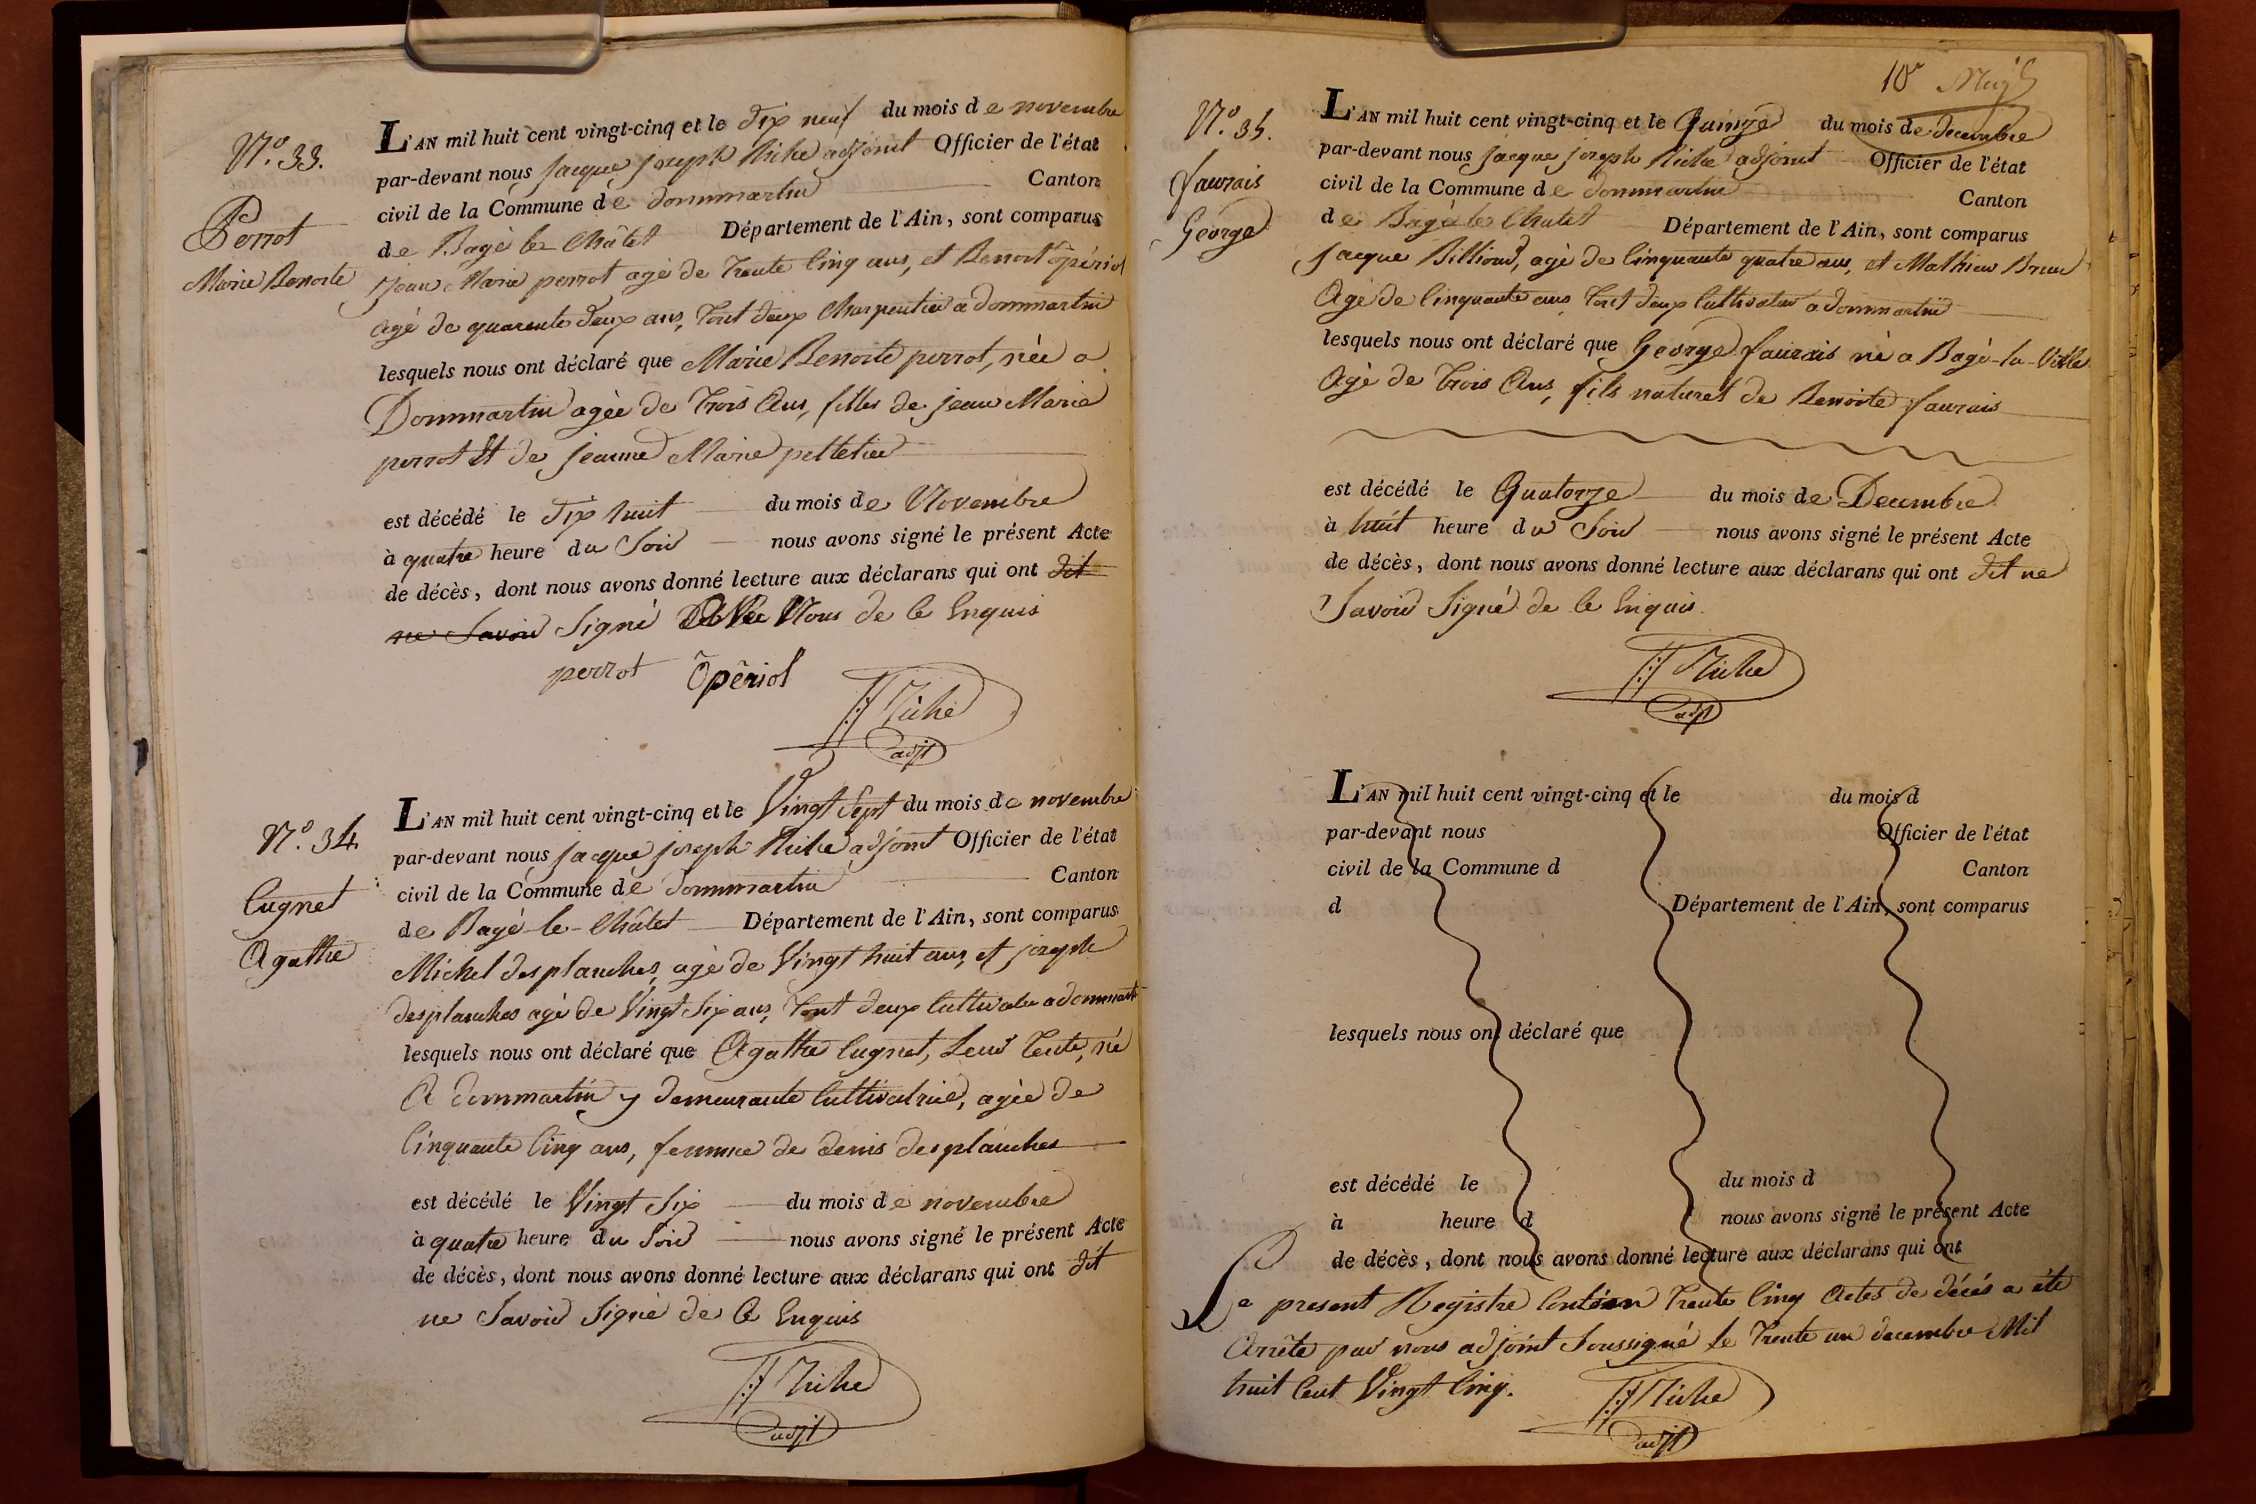 N.° 33.
Perrot
Marie Benoite
L'AN mil huit cent vingt-cinq et le Dix neuf du mois de novembre
par-devant nous Jacque Joseph Riche adjoint Officier de l'état
civil de la Commune de Dommartin Canton
de Bagé le Châtel Département de l'Ain, sont comparus
Jean Marie perrot agé de trente Cinq ans, et Benoit ôpériol
agé de quarente Deux ans, tout deux Charpentier a dommartin
lesquels nous ont déclaré que Marie Benoite perrot, née a
Dommartin agèe de trois Ans, filles de jean Marie
perrot Et de jeanne Marie pelletier
est décédé le Dix huit du mois de Novembre
à quatre heure du Soir nous avons signé le présent Acte
de décès, dont nous avons donné lecture aux déclarans qui ont dit
ne Savoir Signé Nous de Ce Enquis
perrot Ôpêriol
JJ Riche
adjt
N.° 34.
Cugnet
Agathe
L'AN mil huit cent vingt-cinq et le Vingt Sept du mois de novembre
par-devant nous jacque joseph Riche adjoint Officier de l'état
civil de la Commune de Dommartin Canton
de Bagé-le-Châtel Département de l'Ain, sont comparus
Michel desplanches, agé de Vingt huit ans, et joseph
desplanches agé de Vingt Six ans, tout deux Cultivateur a dommarti
lesquels nous ont déclaré que Agathe Cugnet, Leur tente, né
A dommartin y demeurante Cultivatrice, agèe de
Cinquante Cinq ans, femme de denis desplanches
est décédé le Vingt Six du mois de novembre
à quatre heure du Soir nous avons signé le présent Acte
de décès, dont nous avons donné lecture aux déclarans qui ont dit
ne Savoir Signé de Ce Enquis
JJ Riche
adjt
10e
N.° 35.
faurais
George
L'AN mil huit cent vingt-cinq et le Quinze du mois de decembre
par-devant nous jacque joseph Riche adjoint Officier de l'état
civil de la Commune de Dommartin Canton
de Bagé le Chatel Département de l'Ain, sont comparus
jacque Billioud, agé de Cinquante quatre ans, et Mathieu Brun
Agé de Cinquante ans, tout deux Cultivateur a dommartin
lesquels nous ont déclaré que George faurais né a Bagé-la-Ville
Agé de trois Ans, fils naturel de Benoite faurais
est décédé le Quatorze du mois de Decembre
à huit heure du Soir nous avons signé le présent Acte
de décès, dont nous avons donné lecture aux déclarans qui ont dit ne
Savoir Signé de Ce Enquis.
JJ Riche
adjt
L'AN mil huit cent vingt-cinq et le du mois d
par-devant nous Officier de l'état
civil de la Commune d Canton
d Département de l'Ain, sont comparus
lesquels nous ont déclaré que
est décédé le du mois d
à heure d nous avons signé le présent Acte
de décès, dont nous avons donné lecture aux déclarans qui ont
Le present Registre Contenan Trente Cinq Actes de décés a été
Arrête par nous adjoint Soussigné le Trente un decembre Mil
huit Cent Vingt Cinq.
JJ Riche
adjt